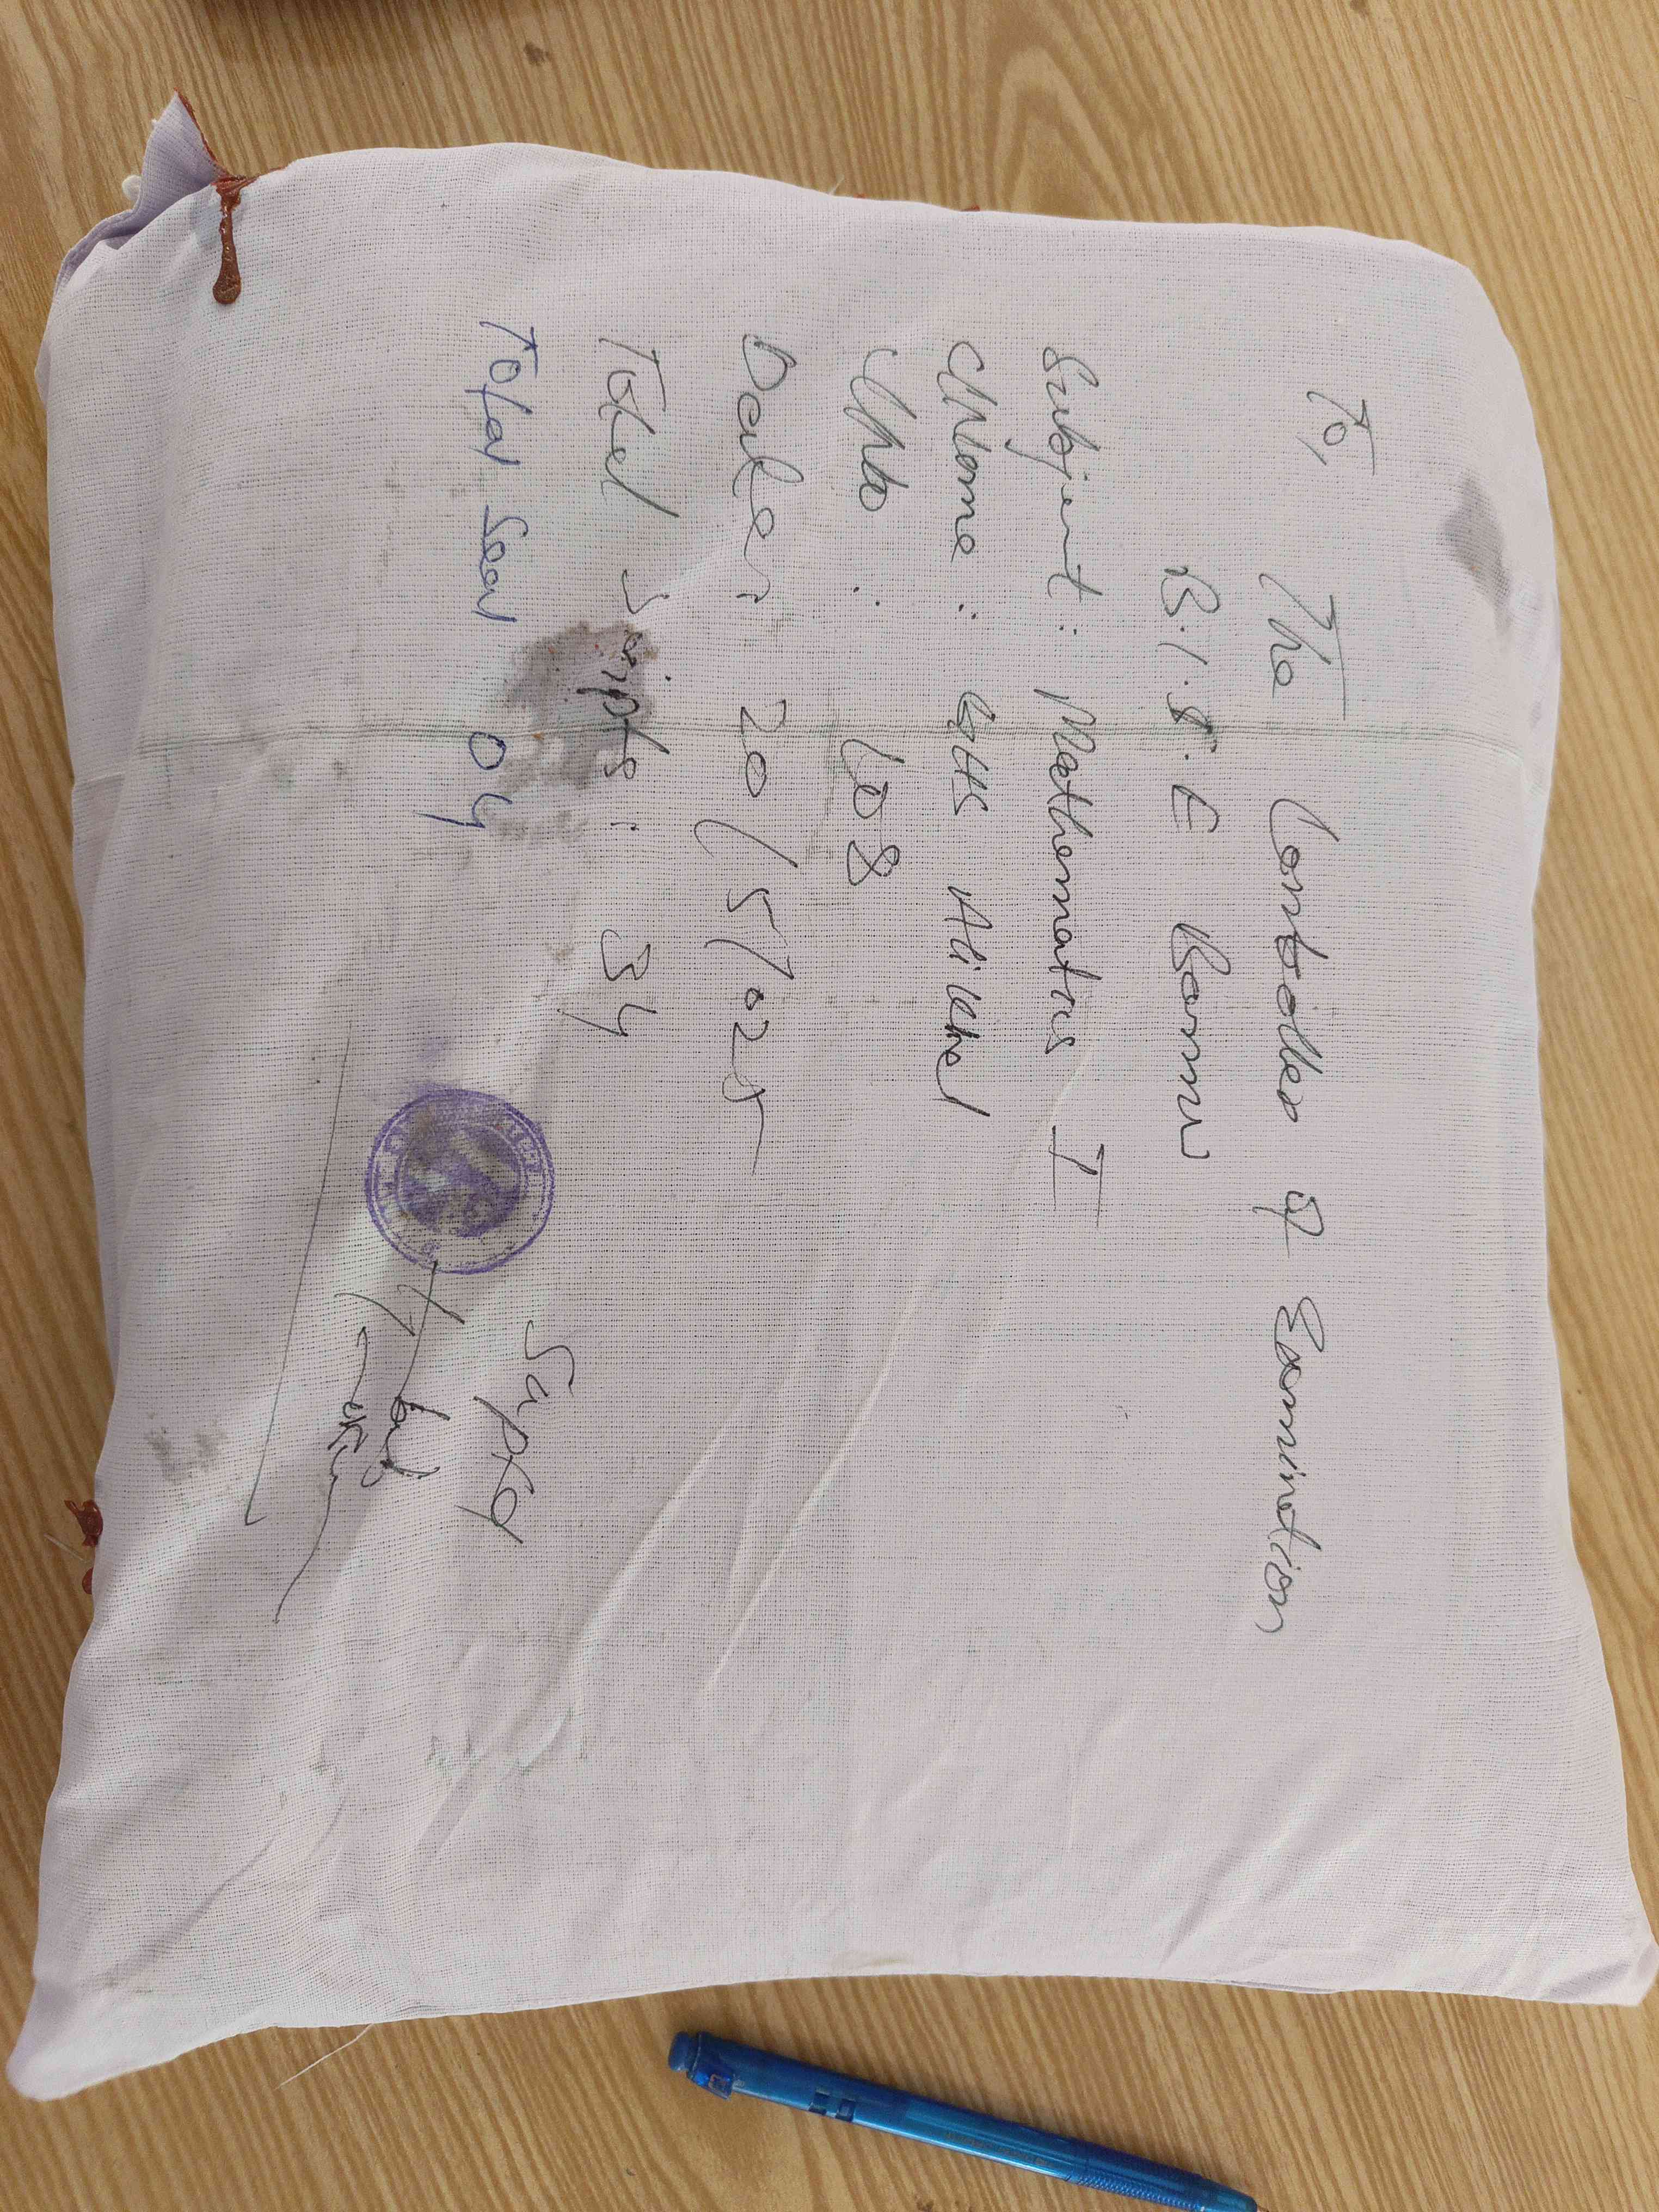 To,
The Controller of Examination
B.I.S.E Bannu
Subject: Mathematics I
C/Name: GHS
C/No: 108
Date: 20/5/2025
Total Scripts: 34
Total Seal 04
Suptd